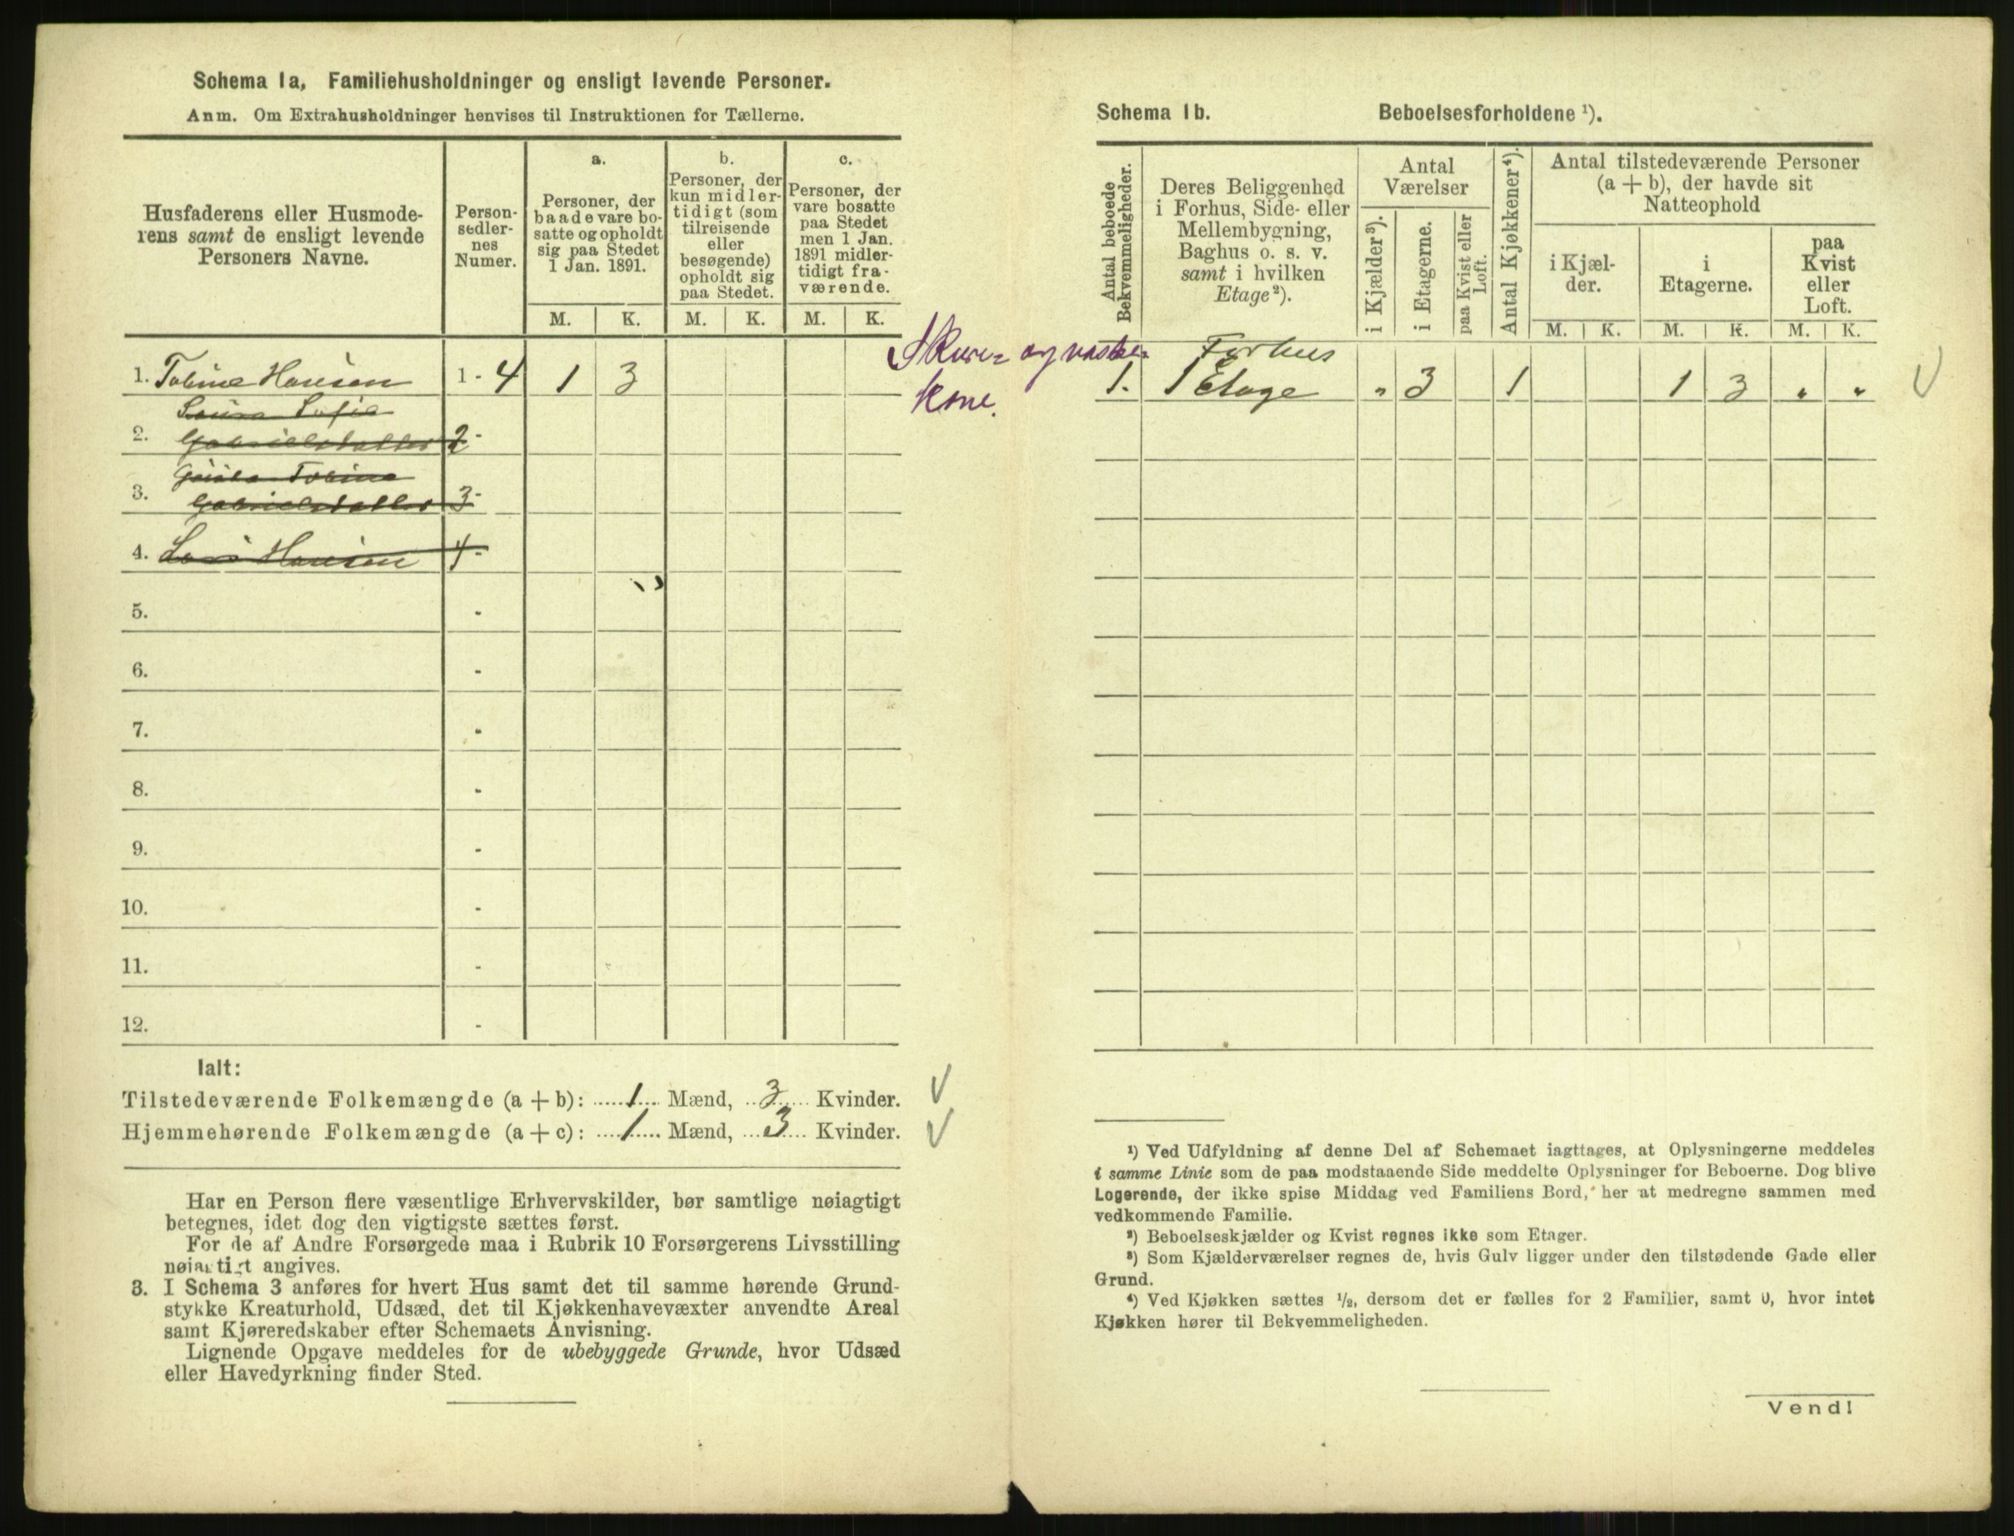 Schema 1a, Familiehusholdninger og ensligt levende Personer.
Anm. Om Extrahusholdninger henvises til Instruktionen for Tællerne.
Husfaderens eller Husmode-
rens samt de ensligt levende
Personers Navne.
Person-
sedler-
nes
Numer.
a.
Personer, der
baade vare bo-
satte og opholdt
sig paa Stedet
1 Jan. 1891.
b.
Personer, der
kun midler-
tidigt (som
tilreisende
eller
besøgende)
opholdt sig
paa Stedet.
c.
Personer, der
vare bosatte
paa Stedet
men 1 Jan.
1891 midler-
tidigt fra-
værende.
M. K. M. K. M. K.
1. Tobine Hansen 1 - 4 1 3
Sofie
2. Gabrielsdatter 2 -
Tobine
3. Gabrielsdatter 3 -
4. Hansen 4 -
5. -
6. -
7. -
8. -
9. -
10. -
11. -
12. -
Ialt:
Tilstedeværende Folkemængde (a + b): 1 Mænd, 3 Kvinder.
Hjemmehørende Folkemængde (a + c): 1 Mænd, 3 Kvinder.
Har en Person flere væsentlige Erhvervskilder, bør samtlige nøiagtigt
betegnes, idet dog den vigtigste sættes først.
For de af Andre Forsørgede maa i Rubrik 10 Forsørgerens Livsstilling
nøiagtigt angives.
3. I Schema 3 anføres for hvert Hus samt det til samme hørende Grund-
stykke Kreaturhold, Udsæd, det til Kjøkkenhavevæxter anvendte Areal
samt Kjøreredskaber efter Schemaets Anvisning.
Lignende Opgave meddeles for de ubebyggede Grunde, hvor Udsæd
eller Havedyrkning finder Sted.
Skure- og vaske-
kone.
Schema 1b. Beboelsesforholdene ¹).
Antal beboede
Bekvemmeligheder.
Deres Beliggenhed
i Forhus, Side- eller
Mellembygning,
Baghus o. s. v.
samt i hvilken
Etage ²).
Antal
Værelser
i Kjælder ³).
i Etagerne.
paa Kvist eller
Loft.
Antal Kjøkkener ⁴).
Antal tilstedeværende Personer
(a + b), der havde sit
Natteophold
i Kjæl-
der.
i
Etagerne.
paa
Kvist
eller
Loft.
M. K. M. K. M. K.
Forhus
1. 1 Etage „ 3 1 1 3 „ „
¹) Ved Udfyldning af denne Del af Schemaet iagttages, at Oplysningerne meddeles
i samme Linie som de paa modstaaende Side meddelte Oplysninger for Beboerne. Dog blive
Logerende, der ikke spise Middag ved Familiens Bord, her at medregne sammen med
vedkommende Familie.
²) Beboelseskjælder og Kvist regnes ikke som Etager.
³) Som Kjælderværelser regnes de, hvis Gulv ligger under den tilstødende Gade eller
Grund.
⁴) Ved Kjøkken sættes ½, dersom det er fælles for 2 Familier, samt 0, hvor intet
Kjøkken hører til Bekvemmeligheden.
Vend!